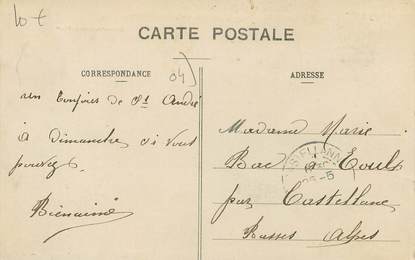 Lot
CARTE POSTALE
CORRESPONDANCE
04
ADRESSE
un bonjour de St André
à Dimanche si vous
pouvez.
Bienaimé
Madame Marie
Bac a Eoulx
par Castellane
Basses Alpes
CASTELLANE